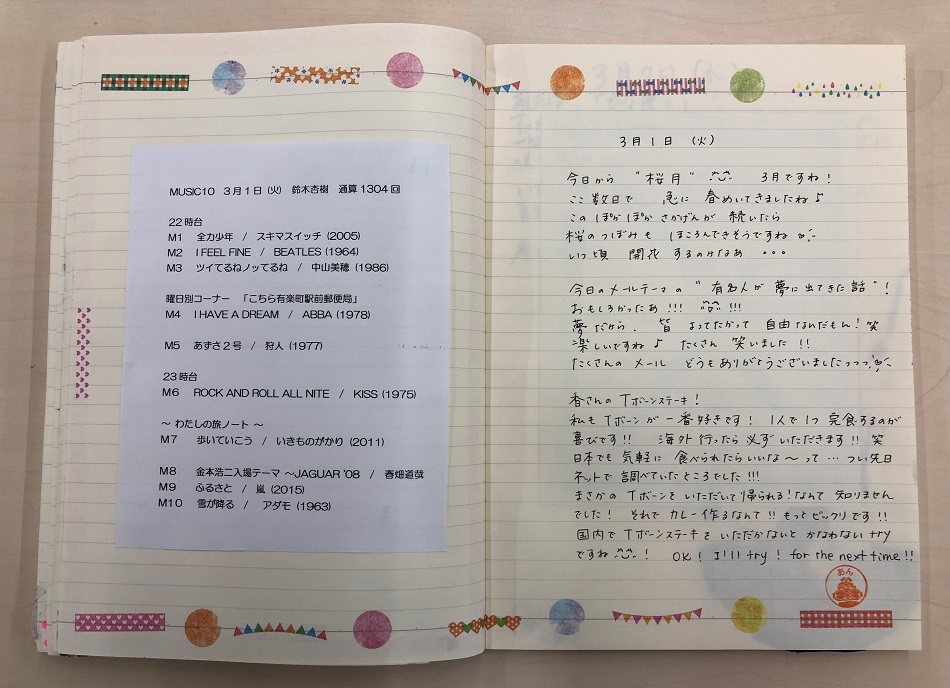 MUSIC10 3月1日(火) 鈴木杏樹 通算1304回
22時台
M1 全力少年 / スキマスイッチ (2005)
M2 I FEEL FINE / BEATLES (1964)
M3 ツイてるねノッてるね / 中山美穂 (1986)
曜日別コーナー 「こちら有楽町駅前郵便局」
M4 I HAVE A DREAM / ABBA (1978)
M5 あずさ2号 / 狩人 (1977)
23時台
M6 ROCK AND ROLL ALL NITE / KISS (1975)
~ わたしの旅ノート ~
M7 歩いていこう / いきものがかり (2011)
M8 金本浩二入場テーマ ~JAGUAR '08 / 春畑道哉
M9 ふるさと / 嵐 (2015)
M10 雪が降る / アダモ (1963)
3月1日 (火)
今日から "桜月" 3月ですね!
ここ数日で 急に 春めいてきましたね♪
この ぽかぽか さかげんが 続いたら
桜のつぼみも ほころんできそうですね
いつ頃 開花 するのかなあ ・・・
今日のメールテーマの "有名人が 夢に出てきた話"!
おもしろかったあ!!! !!!
夢だから、皆 よってたかって 自由なんだもん!笑
楽しいですね♪ たくさん 笑いました!!
たくさんの メール どうもありがとうございましたっっっ
杏さんの Tボーンステーキ!
私も Tボーンが 一番好きです! 1人で1つ 完食するのが
喜びです!! 海外行ったら 必ず いただきます!! 笑
日本でも 気軽に 食べられたらいいな~って … つい先日
ネットで 調べていたところでした!!!
まさかの Tボーンを いただいて帰られる!なんて 知りません
でした! それで カレー作るなんて!! もっとビックリです!!
国内で Tボーンステーキを いただかないと かなわない try
ですね ! OK! I'll try! for the next time!!
あん